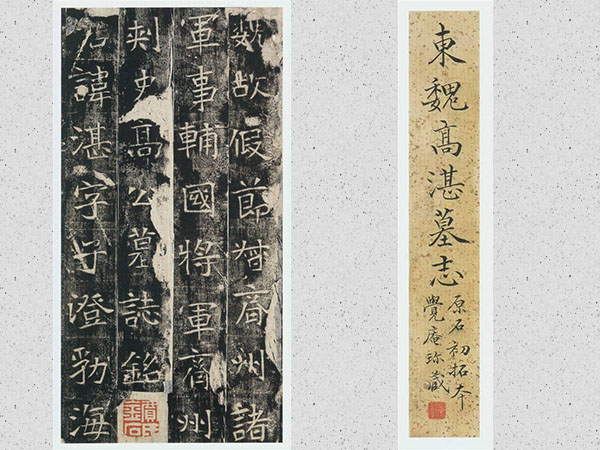 東魏髙湛墓志
原石初拓本
覺庵珎藏
魏故假節督齊州諸
軍事輔國將軍齊州
刾史髙公墓誌銘
君諱湛字子澄勃海